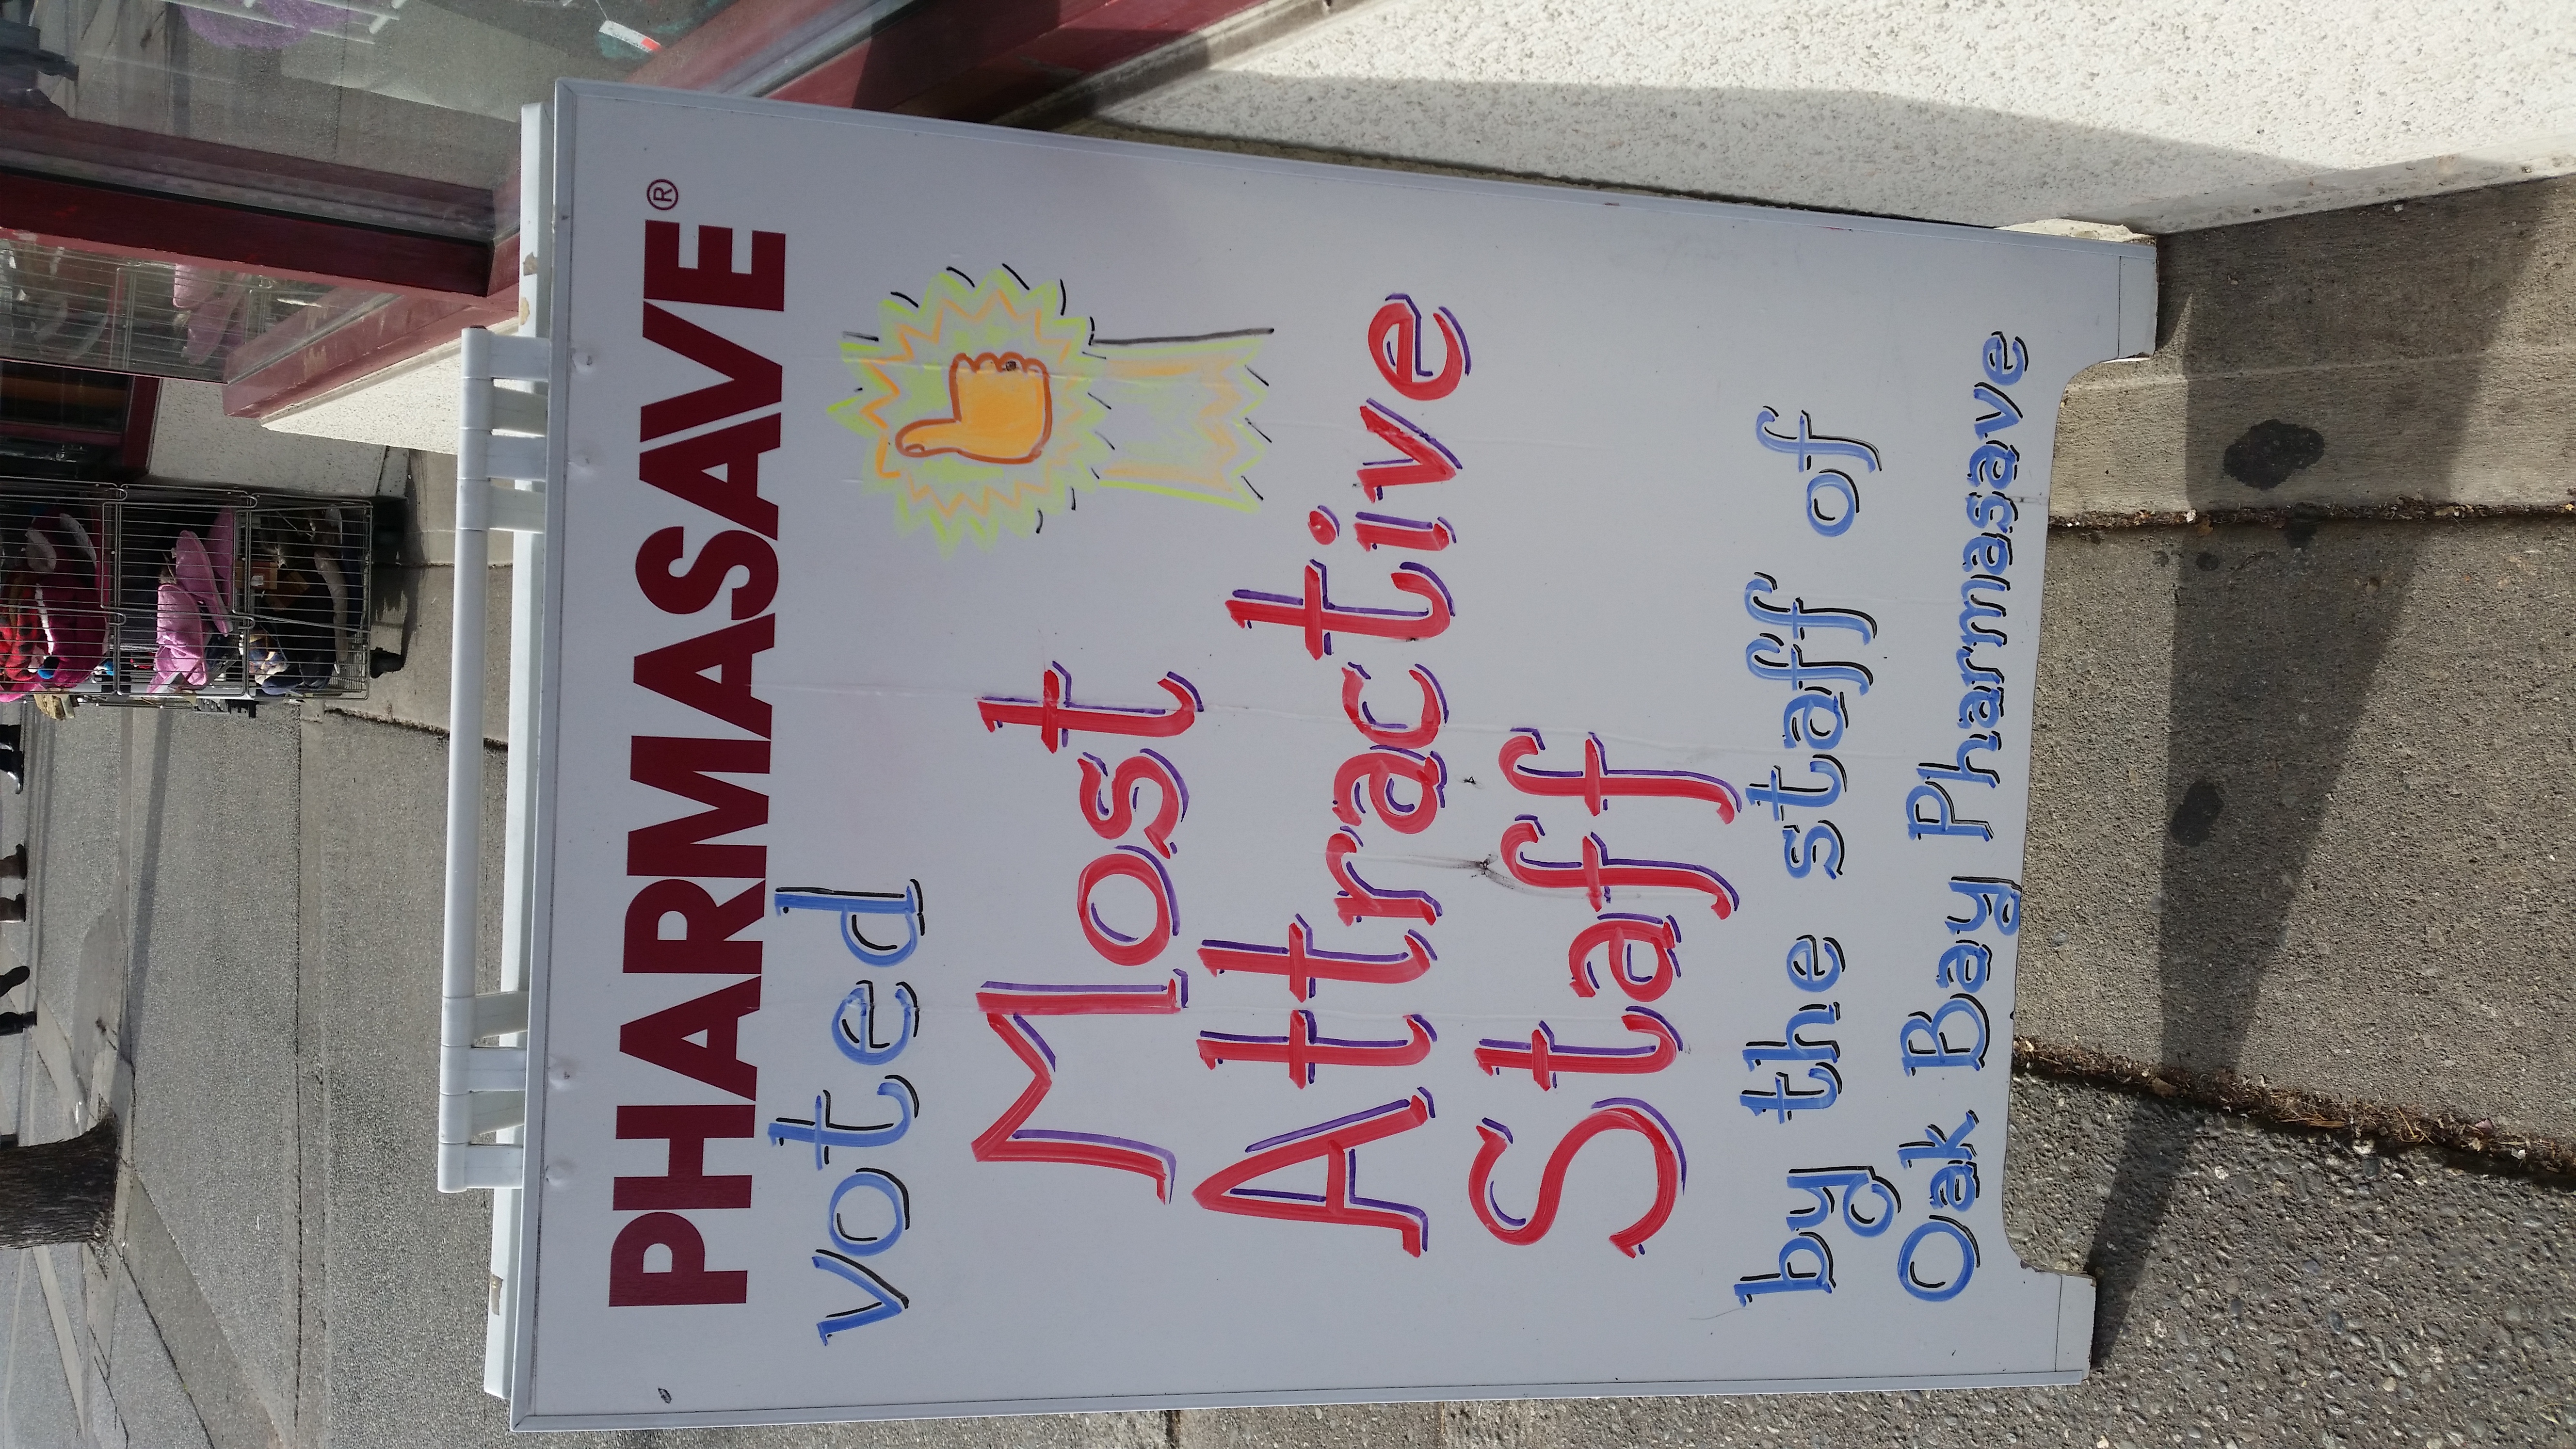 PHARMASAVE®
voted
Most
Attractive
Staff
by the staff of
Oak Bay Pharmasave